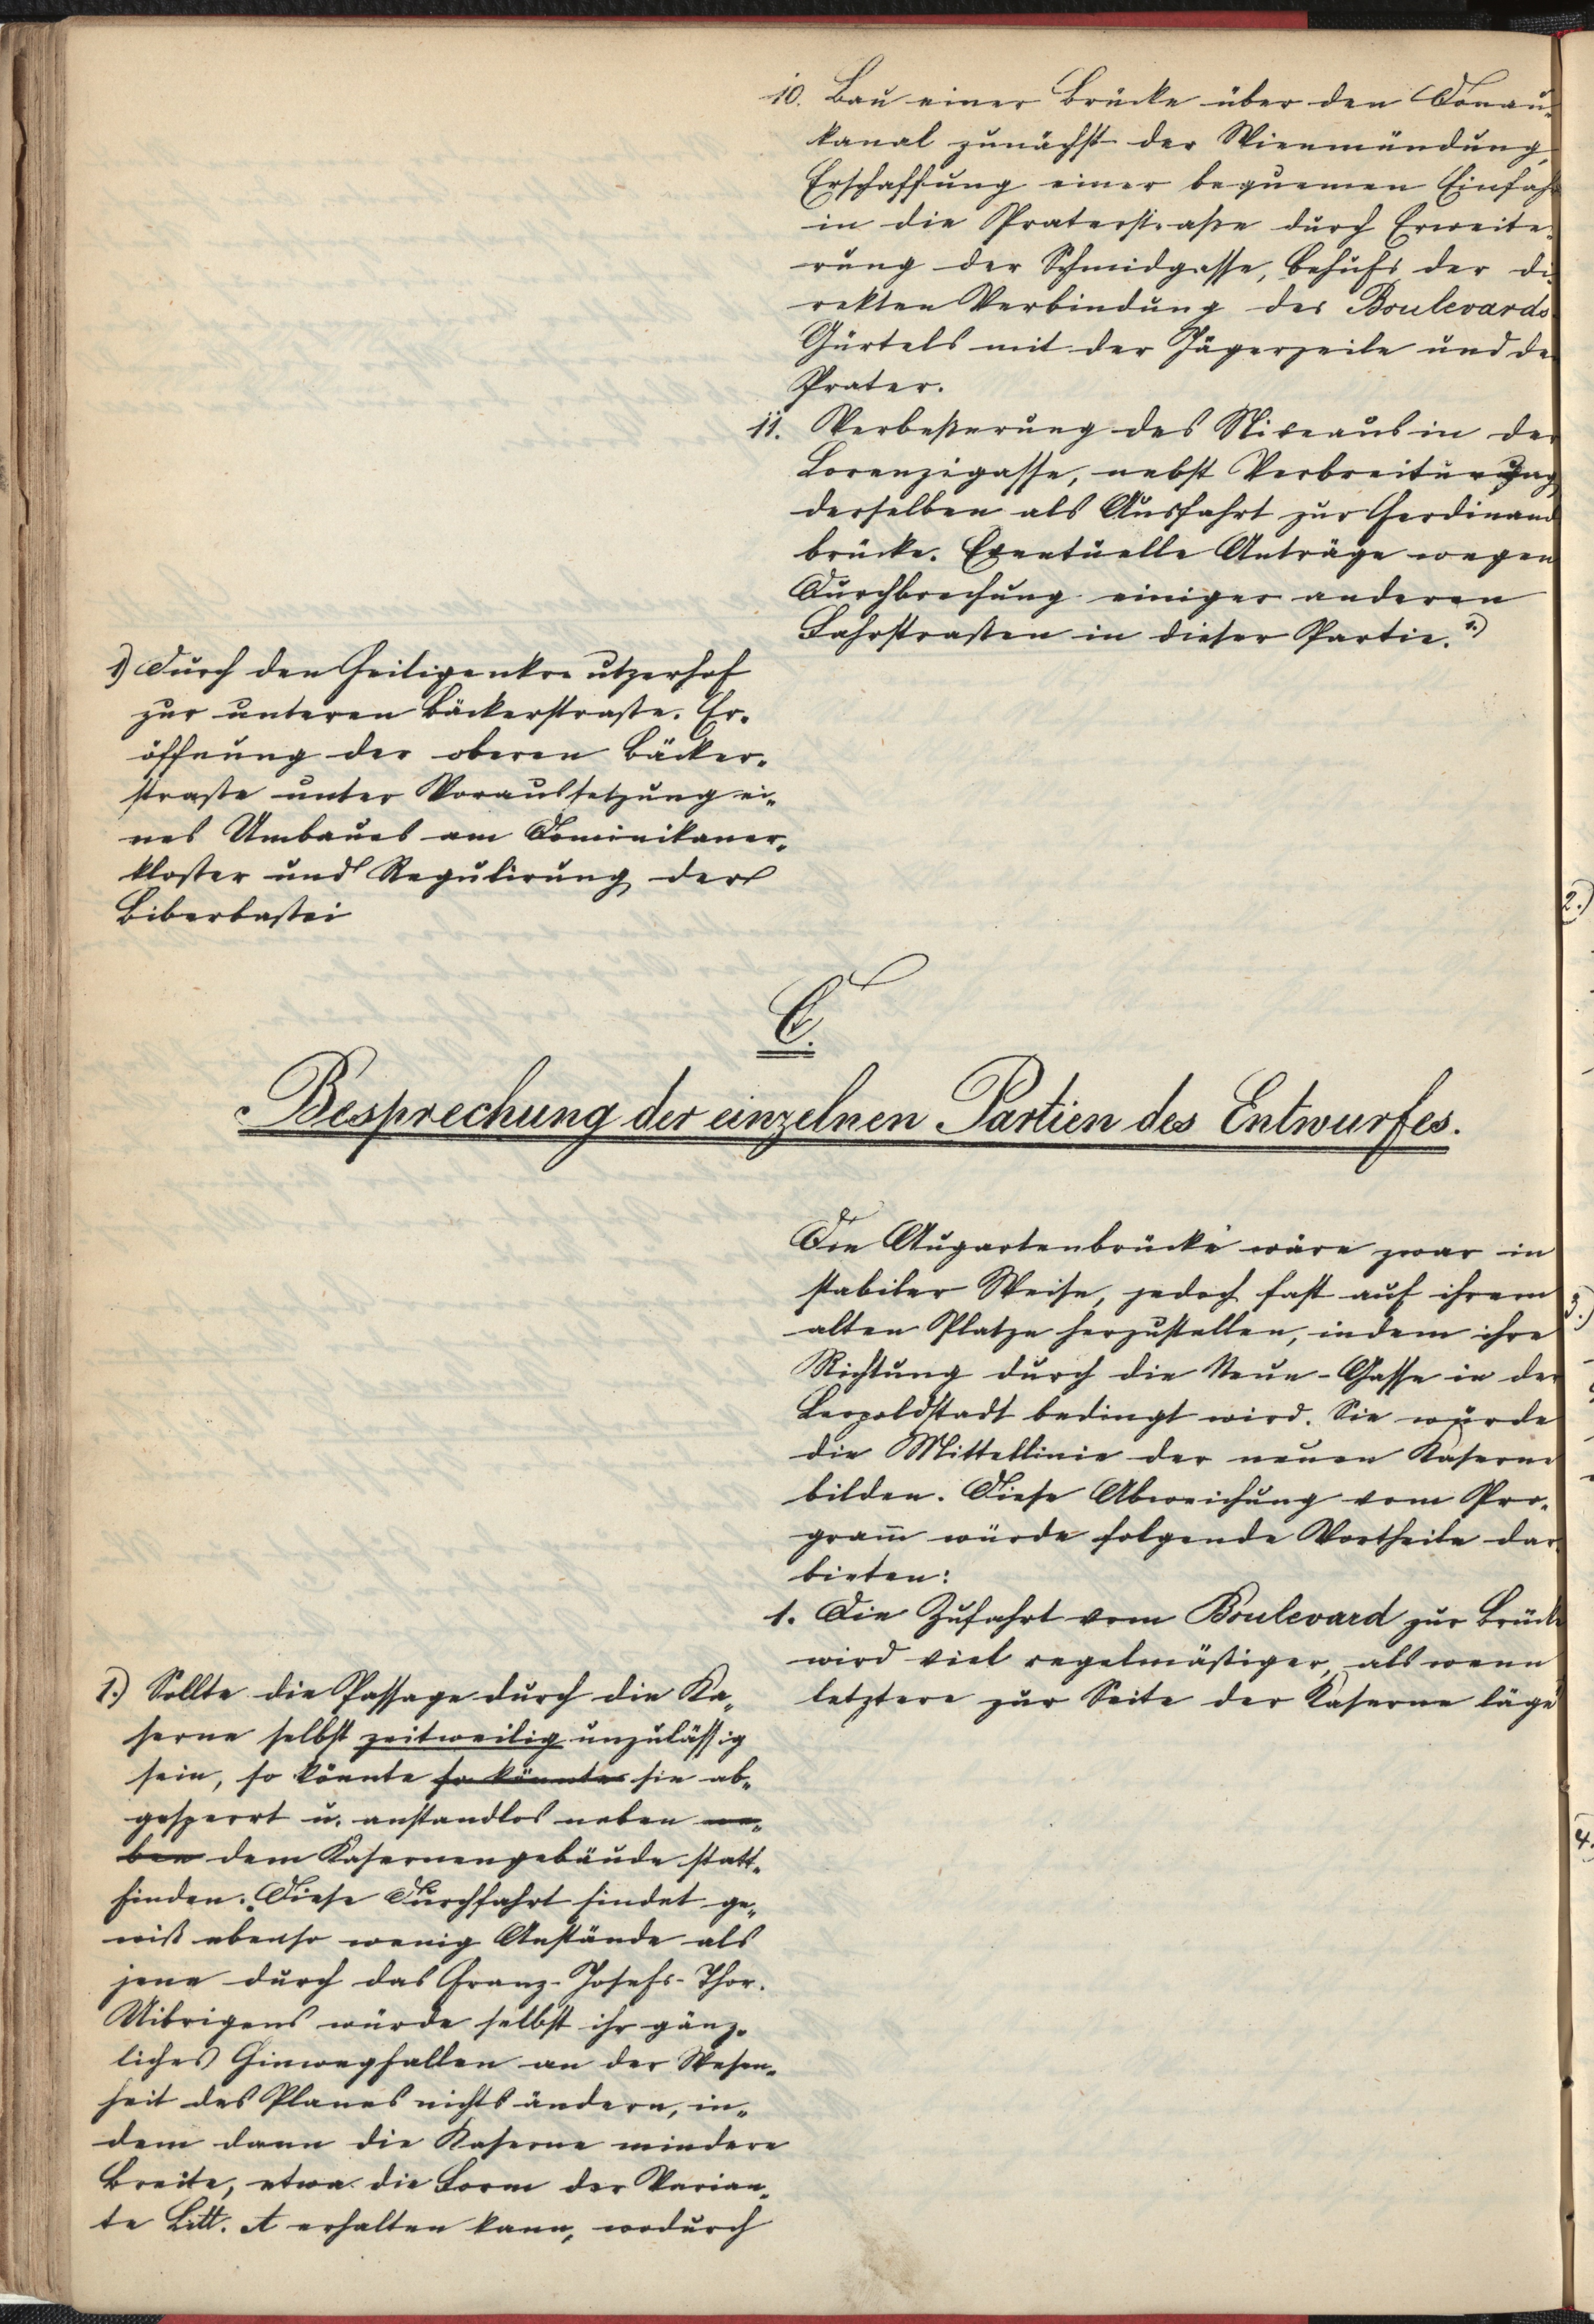 10. Bau einer Brücke über den Donau-
kanal zunächst der Wienmündung,
Erschaffung einer bequemen Einfah
in die Praterstraße durch Erweite-
rung der Schmidgasse, behufs der di
rekten Verbindung des Boulevards
Gürtels mit der Jägerzeile und de
Prater.
11. Verbeßerung des Niveaus in der
Lorenzigasse, nebst Verbreiterung
derselben als Ausfahrt zur Ferdinand
brücke. Eventuelle Anträge wegen
Durchbrechung einiger anderen
Fahrstraßen in dieser Partie. 1.)
1) Durch den Heiligenkreutzerhof
zur unteren Bäckerstraße. Er-
öffnung der oberen Bäcker-
straße unter Voraussetzung ei-
nes Umbaues am Dominikaner-
kloster und Regulirung der
Biberbastei
C.
Besprechung der einzelnen Partien des Entwurfes.
Die Augartenbrücke wäre zwar in
stabiler Weise, jedoch fast auf ihrem
alten Platze herzustellen, indem ihre
Richtung durch die Neue-Gasse in der
Leopoldstadt bedingt wird. Sie würde
die Mittellinie der neuen Kaserne
bilden. Diese Abweichung vom Pro-
gram̅ würde folgende Vortheile dar
bieten:
1. Die Zufahrt vom Boulevard zur Brück
wird viel regelmäßiger, als wenn
letztere zur Seite der Kaserne läge
1.) Sollte die Passage durch die Ka-
serne selbst zeitweilig unzulässig
sein, so könnte so könnte sie ab-
gesperrt u. anstandlos neben ne-
ben dem Kasernengebäude statt-
finden. Diese Durchfahrt findet ge-
wiß ebenso wenig Anstände als
jene durch das Franz-Josefs-Thor.
Uibrigens würde selbst ihr gänz-
liches Hinwegfallen an der Wesen-
heit des Planes nichts ändern, in-
dem dann die Kaserne mindere
Breite, etwa die Form der Varian-
te Litt. A erhalten kann, wodurch
2.)
3.)
4.